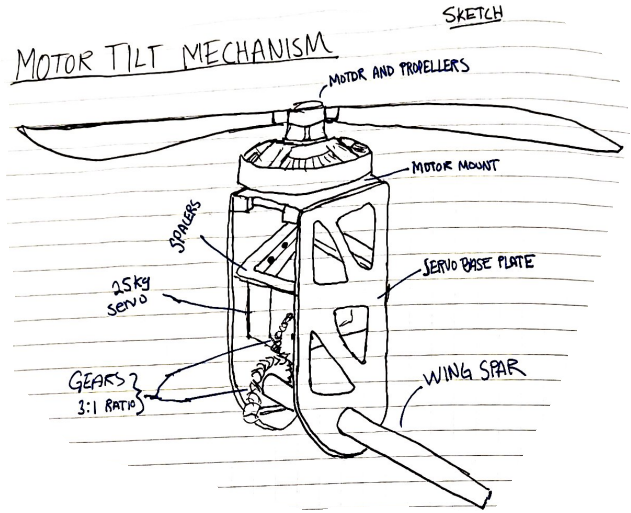 SKETCH
MOTOR TILT MECHANISM
MOTOR AND PROPELLERS
MOTOR MOUNT
SPACERS
SERVO BASE PLATE
25kg
servo
WING SPAR
GEARS
3:1 RATIO